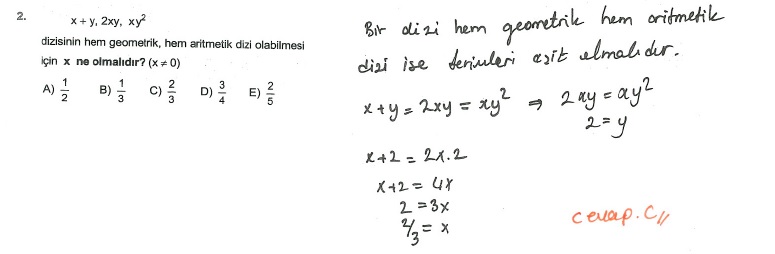 2.
x + y, 2xy, xy²
dizisinin hem geometrik, hem aritmetik dizi olabilmesi
için x ne olmalıdır? (x ≠ 0)
A) 1/2 B) 1/3 C) 2/3 D) 3/4 E) 2/5
Bir dizi hem geometrik hem aritmetik
dizi ise terimleri eşit olmalıdır.
x + y = 2xy = xy² ⇒ 2xy = xy²
2 = y
x + 2 = 2x.2
x + 2 = 4x
2 = 3x
2/3 = x
cevap. C//